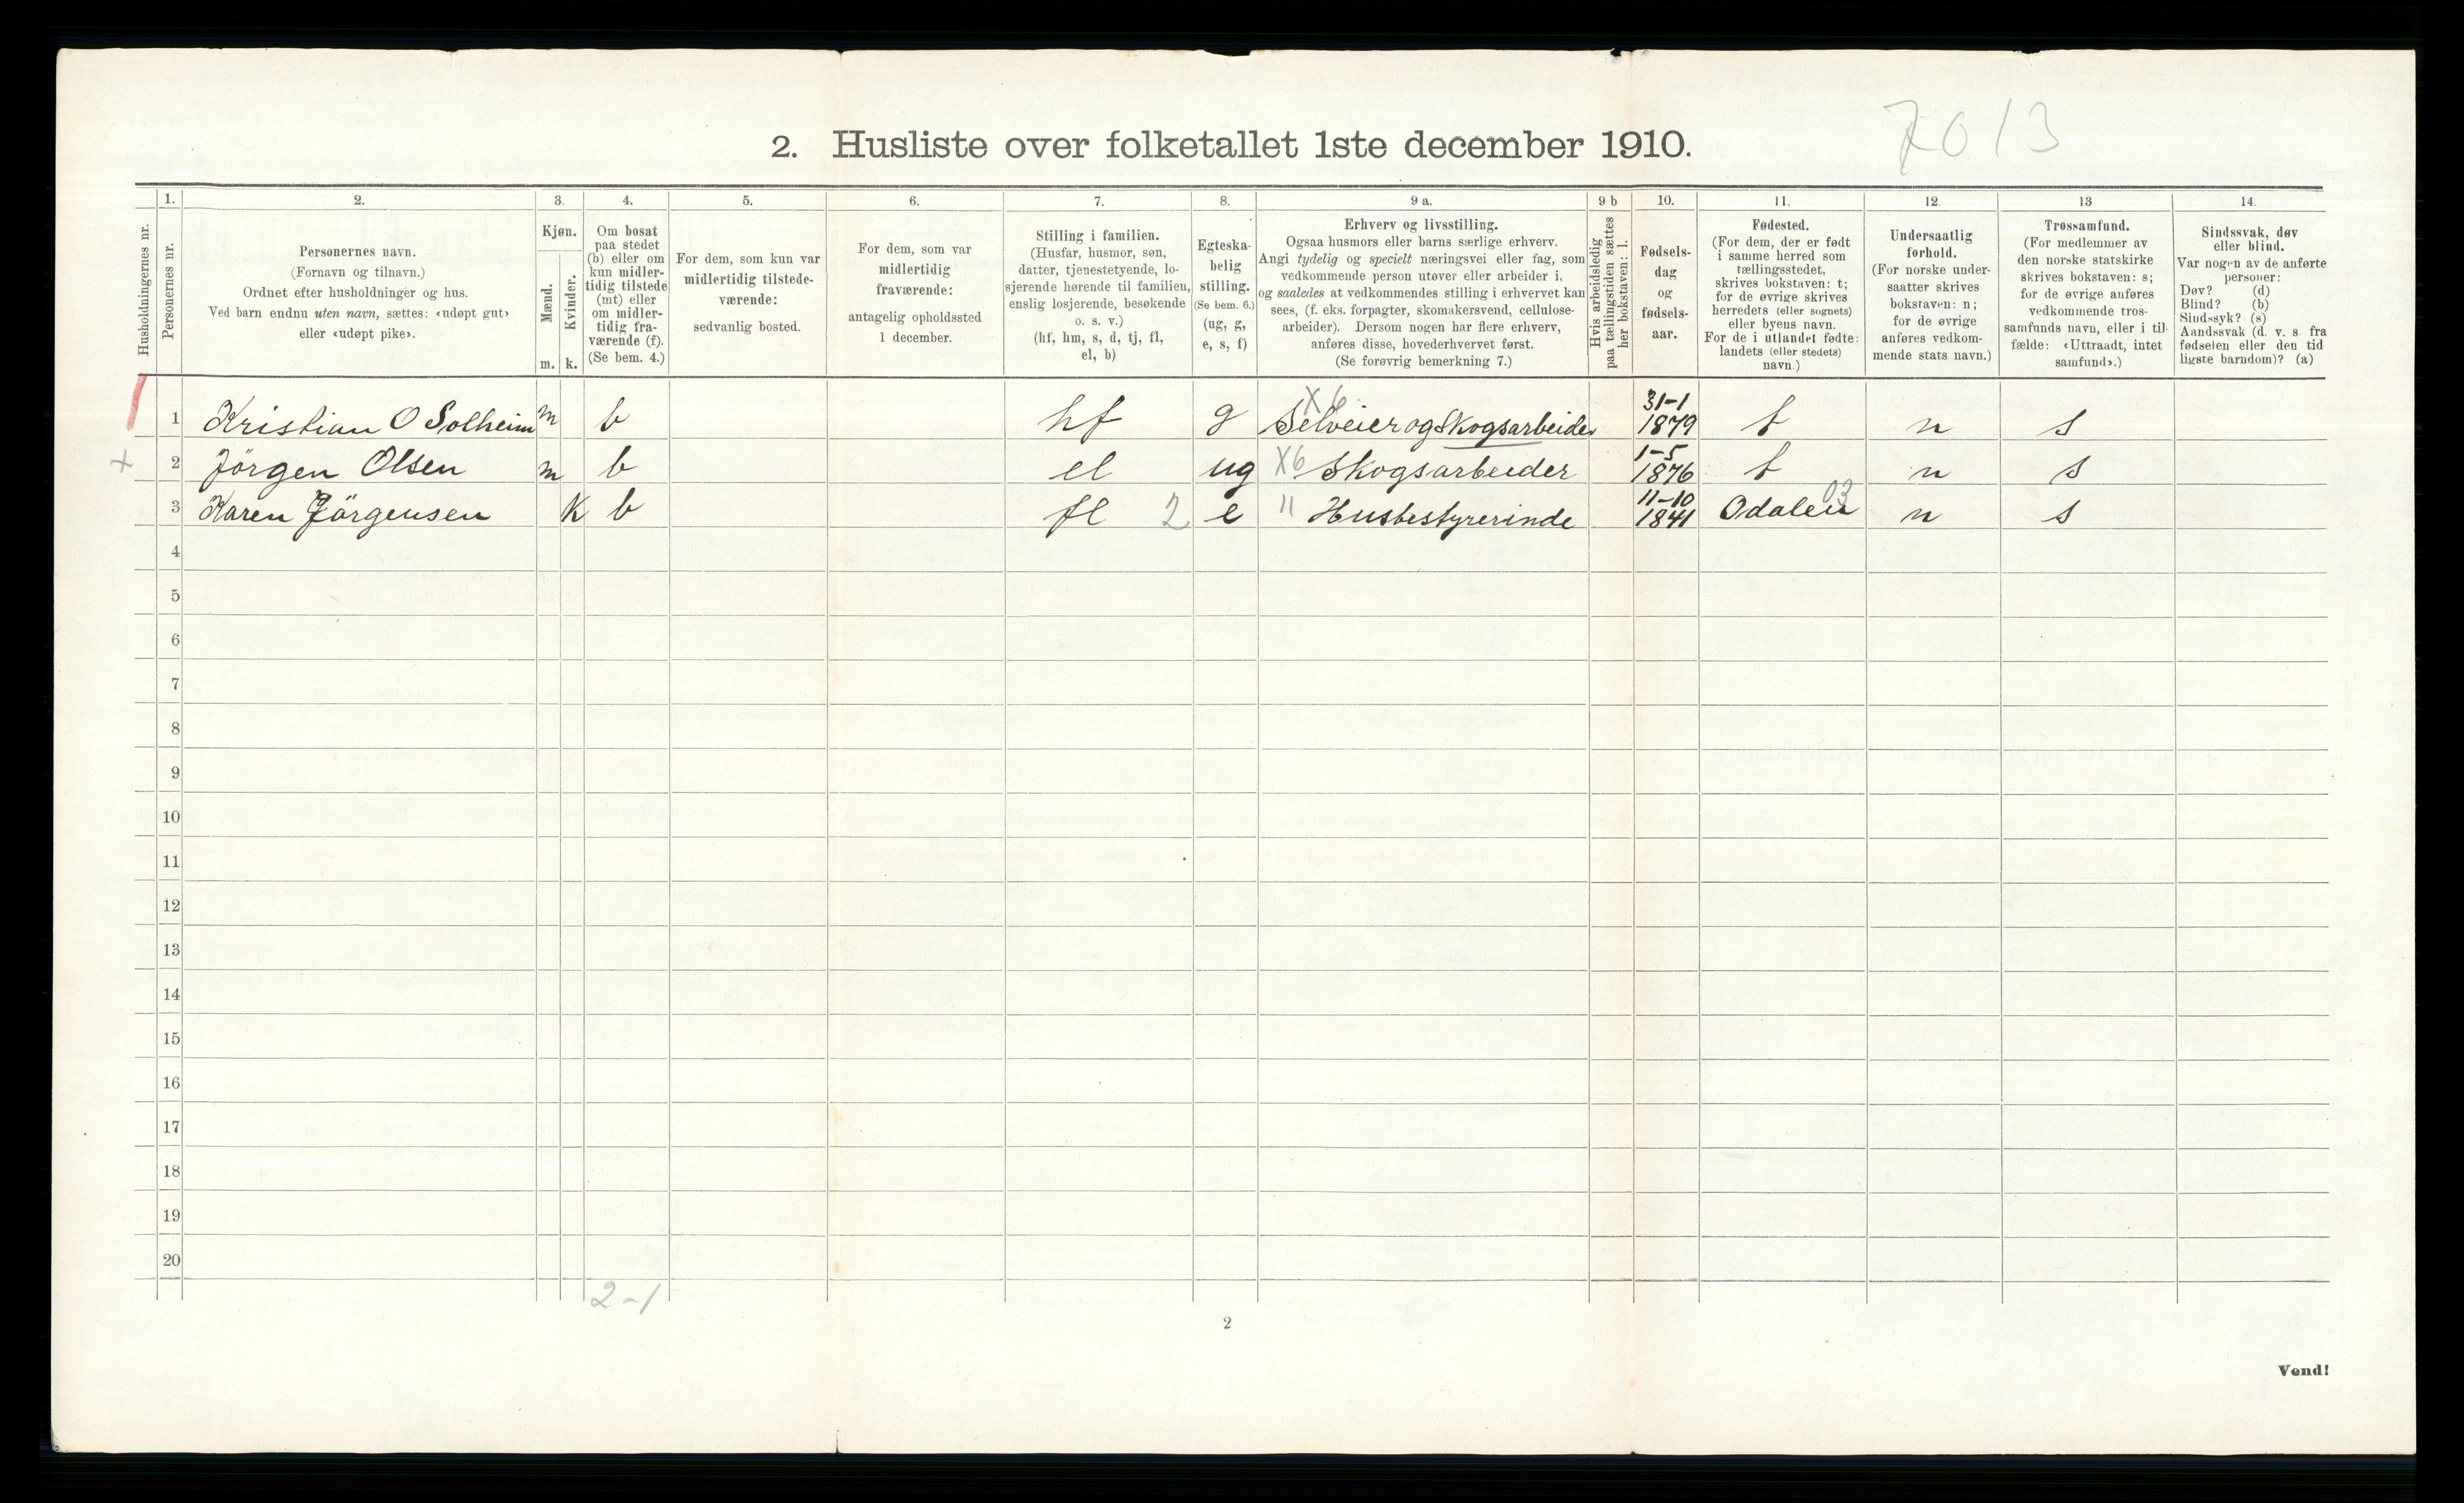 7013
2. Husliste over folketallet 1ste december 1910.
Husholdningernes nr.
1.
Personernes nr.
2.
Personernes navn.
(Fornavn og tilnavn.)
Ordnet efter husholdninger og hus.
Ved barn endnu uten navn, sættes: «udøpt gut»
eller «udøpt pike».
3.
Kjøn.
Mænd.
m.
Kvinder.
k.
4.
Om bosat
paa stedet
(b) eller om
kun midler-
tidig tilstede
(mt) eller
om midler-
tidig fra-
værende (f).
(Se bem. 4.)
5.
For dem, som kun var
midlertidig tilstede-
værende:
sedvanlig bosted.
6.
For dem, som var
midlertidig
fraværende:
antagelig opholdssted
1 december.
7.
Stilling i familien.
(Husfar, husmor, søn,
datter, tjenestetyende, lo-
sjerende hørende til familien,
enslig losjerende, besøkende
o. s. v.)
(hf, hm, s, d, tj, fl,
el, b)
8.
Egteska-
belig
stilling.
(Se bem. 6.)
(ug, g,
e, s, f)
9 a.
Erhverv og livsstilling.
Ogsaa husmors eller barns særlige erhverv.
Angi tydelig og specielt næringsvei eller fag, som
vedkommende person utøver eller arbeider i,
og saaledes at vedkommendes stilling i erhvervet kan
sees, (f. eks. forpagter, skomakersvend, cellulose-
arbeider). Dersom nogen har flere erhverv,
anføres disse, hovederhvervet først.
(Se forøvrig bemerkning 7.)
9 b
Hvis arbeidsledig
paa tællingstiden sættes
her bokstaven: l.
10.
Fødsels-
dag
og
fødsels-
aar.
11.
Fødested.
(For dem, der er født
i samme herred som
tællingsstedet,
skrives bokstaven: t;
for de øvrige skrives
herredets (eller sognets)
eller byens navn.
For de i utlandet fødte:
landets (eller stedets)
navn.)
12.
Undersaatlig
forhold.
(For norske under-
saatter skrives
bokstaven: n;
for de øvrige
anføres vedkom-
mende stats navn.)
13
Trossamfund.
(For medlemmer av
den norske statskirke
skrives bokstaven: s;
for de øvrige anføres
vedkommende tros-
samfunds navn, eller i til-
fælde: «Uttraadt, intet
samfund».)
14.
Sindssvak, døv
eller blind.
Var nogen av de anførte
personer:
Døv? (d)
Blind? (b)
Sindssyk? (s)
Aandssvak (d. v. s. fra
fødselen eller den tid
ligste barndom)? (a)
1 Kristian O Solheim m b hf g X6 Selveier og Skogsarbeider 31-1 1879 t n s
+ 2 Jörgen Olsen m b el ug X6 Skogsarbeider 1-5 1876 t n s
3 Karen Jörgensen K b fl 2 e " Husbestyrerinde 11-10 1841 Odalen 03 n s
4
5
6
7
8
9
10
11
12
13
14
15
16
17
18
19
20
2-1
2
Vend!